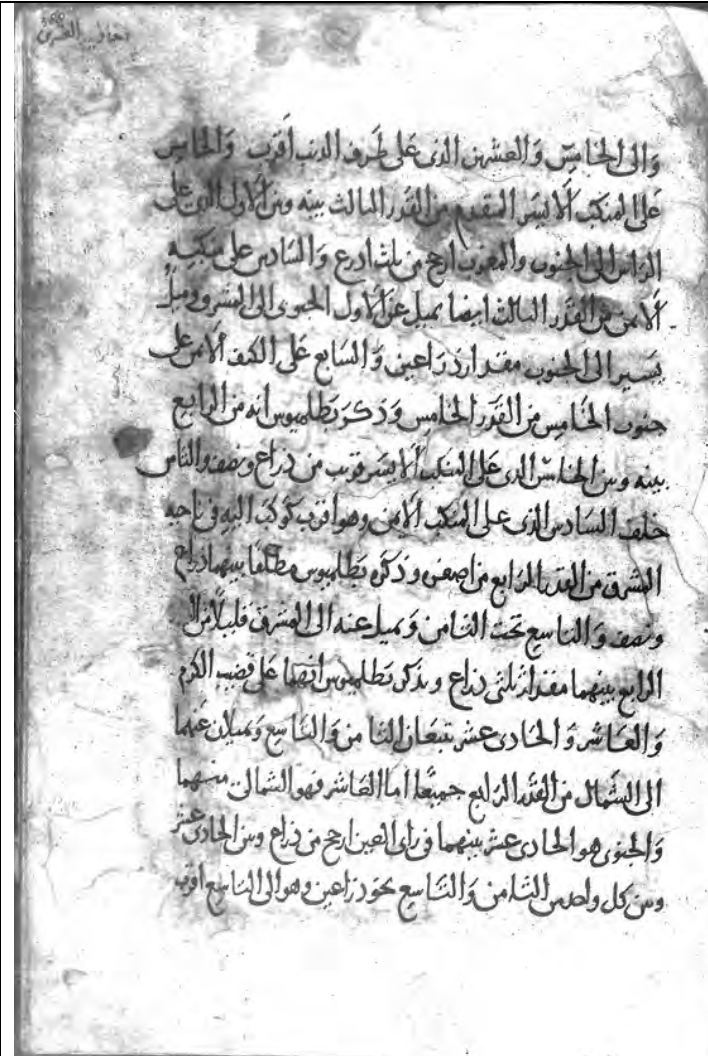 والى الخامس والعشرين الذى على طرف الذنب أقرب والخامس
على المنكب الايسر المقدم من القدر الثالث بينه وبين الاول الذى على
الراس الى الجنوب والمغرب ارجح من ثلث اذرع والسادس على منكبه
الايمن من القدر الثالث ايضا يميل عن الاول الجنوبى الى المشرق وميل
يسير الى الجنوب مقدار ذراعين والسابع على الكتف الايمن على
جنوب الخامس من القدر الخامس وذكر بطلميوس انه من الرابع
بينه وبين الخامس الذى على المنكب الايسر قريب من ذراع ونصف والثامن
خلف السادس الذى على المنكب الايمن وهو اقرب كوكب اليه فى ناحيه
المشرق من القدر الرابع من اصغره وذكره بطلميوس مطلقا بينهما ذراع
ونصف والتاسع تحت الثامن ويميل عنه الى المشرق قليلا من
الرابع بينهما مقدار ثلثى ذراع ويذكر بطلميوس انهما على قضيب الكرم
والعاشر والحادى عشر تتبعان الثامن والتاسع ويميلان عنهما
الى الشمال من القدر الرابع جميعا اما العاشر فهو الشمالى منهما
والجنوبى هو الحادى عشر بينهما فى راى العين ارجح من ذراع وبين الحادى عشر
وبين كل واحد من الثامن والتاسع نحو ذراعين وهو الى التاسع اقرب